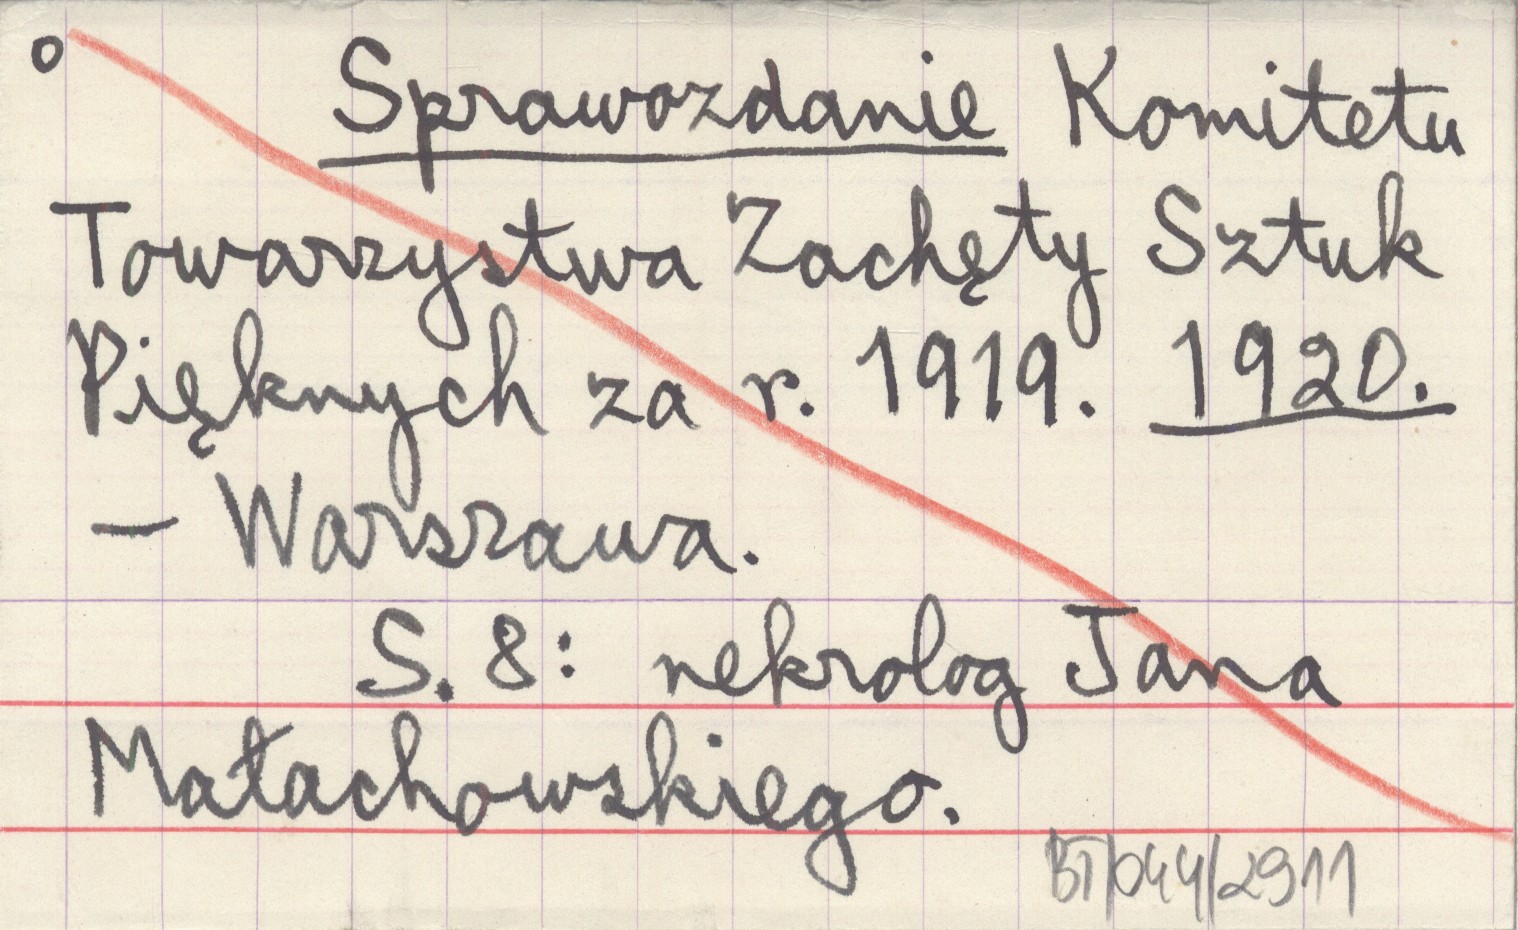 o Sprawozdanie Komitetu
Towarzystwa Zachęty Sztuk
Pięknych za r. 1919. 1920.
— Warszawa.
S. 8: nekrolog Jana
Małachowskiego.
BT/044/2911